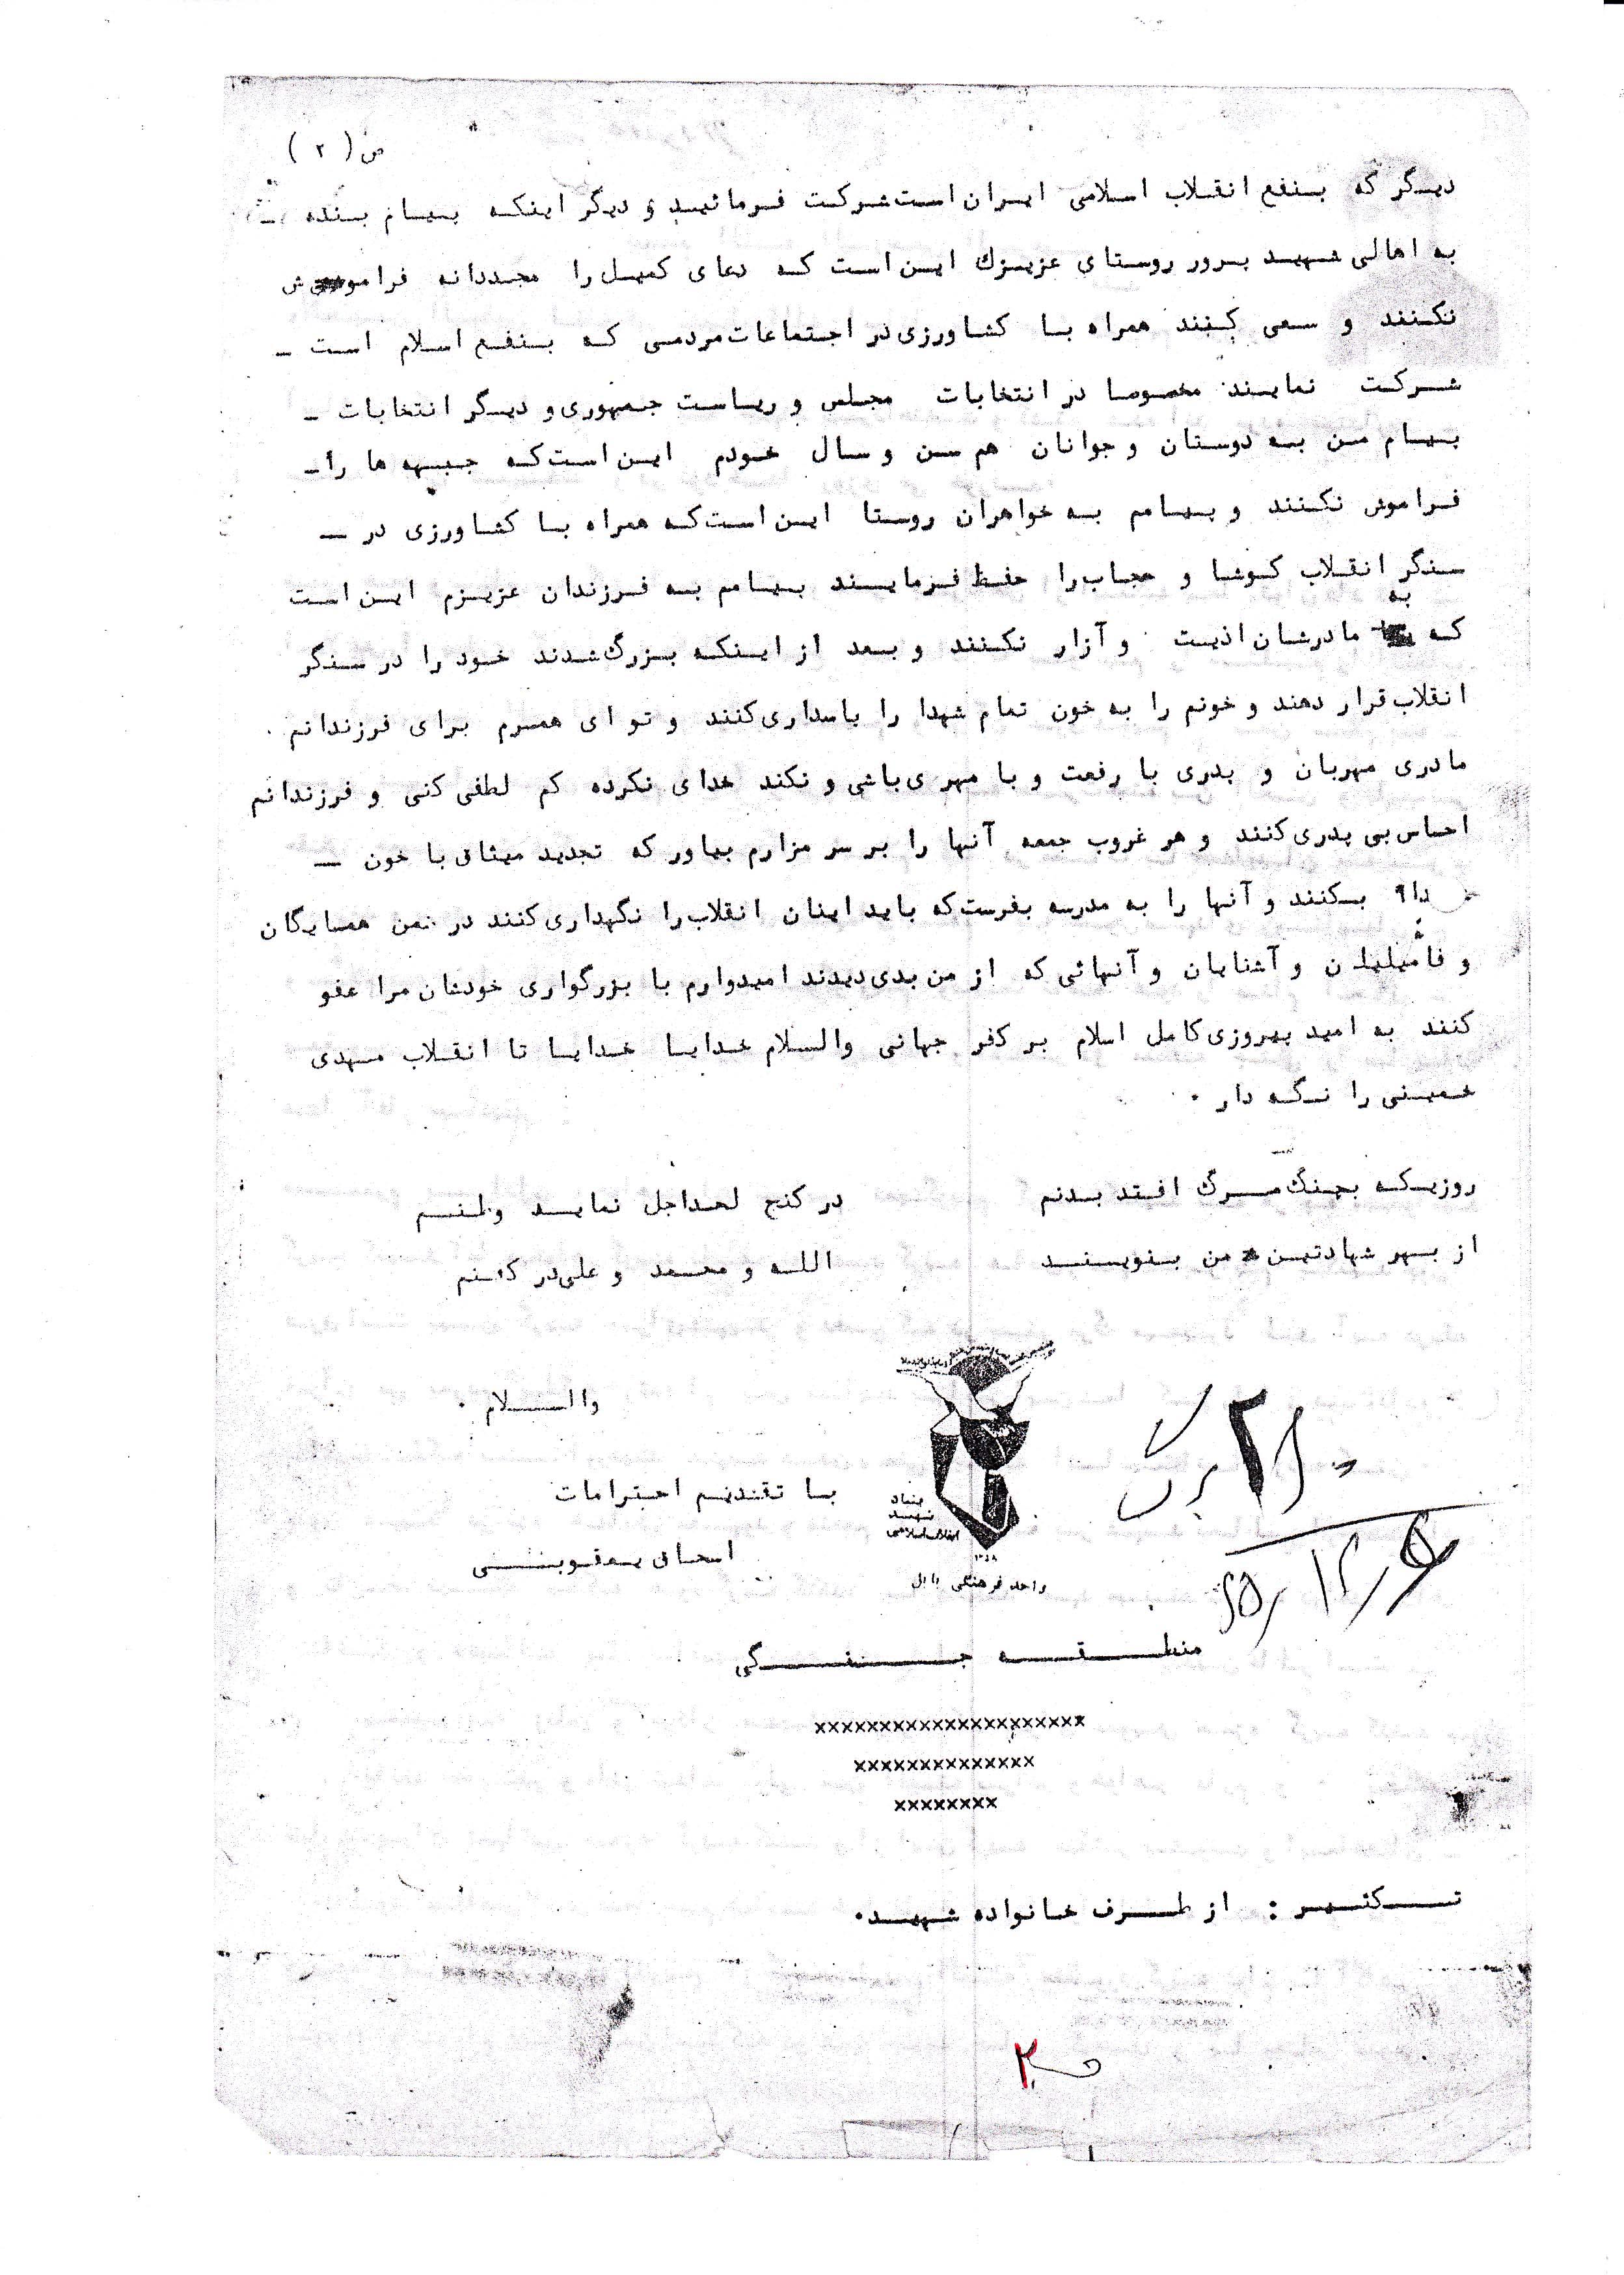 ص ( ۲ )
دیگر که بنفع انقلاب اسلامی ایران است شرکت فرمائید و دیگر اینکه پیام بنده
به اهالی شهید پرور روستای عزیزك این است که دعای کمیل را مجددانه فراموش
نکنند و سعی کنند همراه با کشاورزی در اجتماعات مردمی که بنفع اسلام است ـ
شرکت نمایند مخصوصا در انتخابات مجلس و ریاست جمهوری و دیگر انتخابات ـ
پیام من به دوستان و جوانان هم سن و سال خودم این است که جبهه ها را ـ
فراموش نکنند و پیامم به خواهران روستا این است که همراه با کشاورزی در ـ
سنگر انقلاب کوشا و حجاب را حفظ فرمایند پیامم به فرزندان عزیزم این است
که به مادرشان اذیت و آزار نکنند و بعد از اینکه بزرگ شدند خود را در سنگر
انقلاب قرار دهند و خونم را به خون تمام شهدا را پاسداری کنند و تو ای همسرم برای فرزندانم .
مادری مهربان و پدری با رفعت و با مهری باشی و نکند خدای نکرده کم لطفی کنی و فرزندانم
احساس بی پدری کنند و هر غروب جمعه آنها را بر سر مزارم بیاور که تجدید میثاق با خون ـ
بکنند و آنها را به مدرسه بفرست که باید اینان انقلاب را نگهداری کنند در ضمن همسایگان
و فامیلیلن و آشنایان و آنهائی که از من بدی دیدند امیدوارم با بزرگواری خودشان مرا عفو
کنند به امید پیروزی کامل اسلام بر کفر جهانی والسلام خدایا خدایا تا انقلاب مهدی
خمینی را نگه دار .
روزیکه بچنگ مرگ افتد بدنم در کنج لحداجل نماید وطنم
از بهر شهادتین من بنویسید الله و محمد و علی در کفنم
والسلام .
با تقدیم احترامات
اسحاق یعقوبی
بنیاد
شهید
انقلاب اسلامی
۱۳۵۸
واحد فرهنگی بابل
۲ برگ
۶۵/۱۲/۵
منطقه جنگی
xxxxxxxxxxxxxxxxxxxxx
xxxxxxxxxxxxxx
xxxxxxxx
تکثیر : از طرف خانواده شهید.
ص ۲